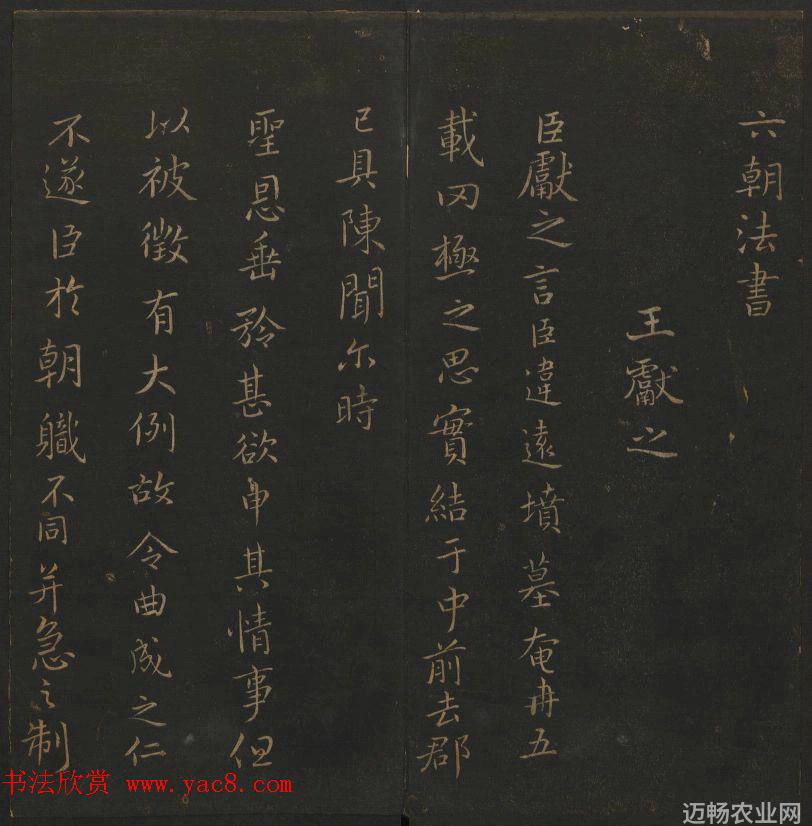 六朝法書
王獻之
臣獻之言臣違遠墳墓奄冉五
載罔極之思實結于中前去郡
已具陳聞尔時
聖恩垂矜甚欲申其情事但
以被徵有大例故令曲成之仁
不遂臣於朝軄不同并急之制
书法欣赏 www.yac8.com
迈畅农业网